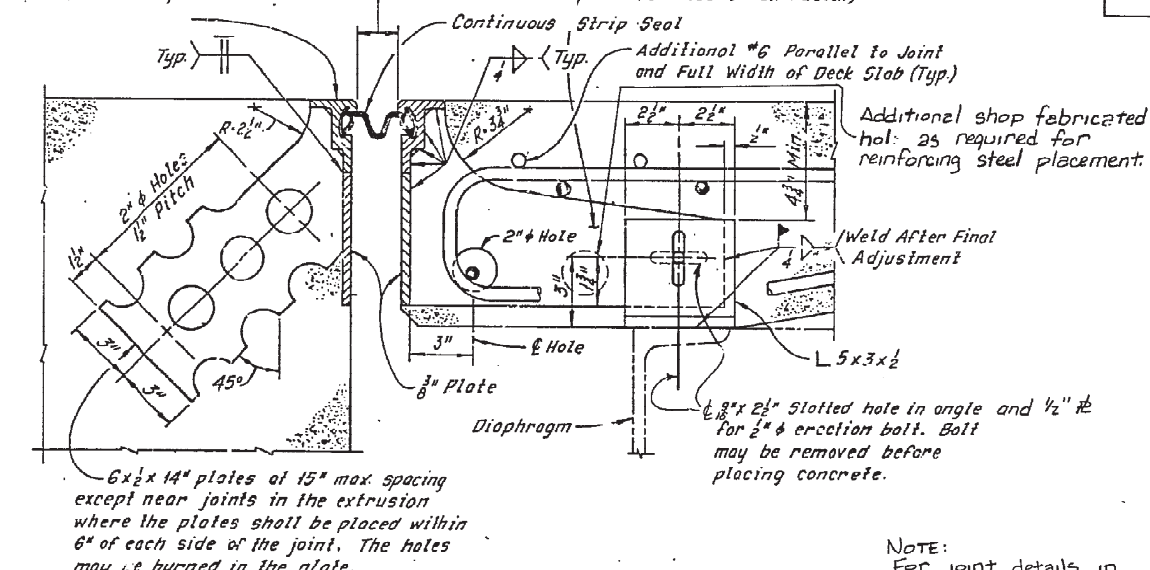 Continuous Strip Seal
Typ.
1/4 Typ.
Additional #6 Parallel to Joint
and Full Width of Deck Slab (Typ.)
Additional shop fabricated
as required for
reinforcing steel placement.
R=2 1/2"
R=3 3/4"
2 1/2" 2 1/2"
1/2"
4 3/4" Min.
2" ϕ Holes
1 1/2" Pitch
1 1/2"
2" ϕ Hole
3"
1 3/4"
1/4
Weld After Final
Adjustment
3"
3"
45°
3"
℄ Hole
3/8" Plate
L 5x3x1/2
Diaphragm
℄ 9/16" x 2 1/2" Slotted hole in angle and 1/2" ℞
for 1/2" ϕ erection bolt. Bolt
may be removed before
placing concrete.
6x1/2x14" plates at 15" max. spacing
except near joints in the extrusion
where the plates shall be placed within
6" of each side of the joint. The holes
may be burned in the plate.
NOTE:
For joint details in